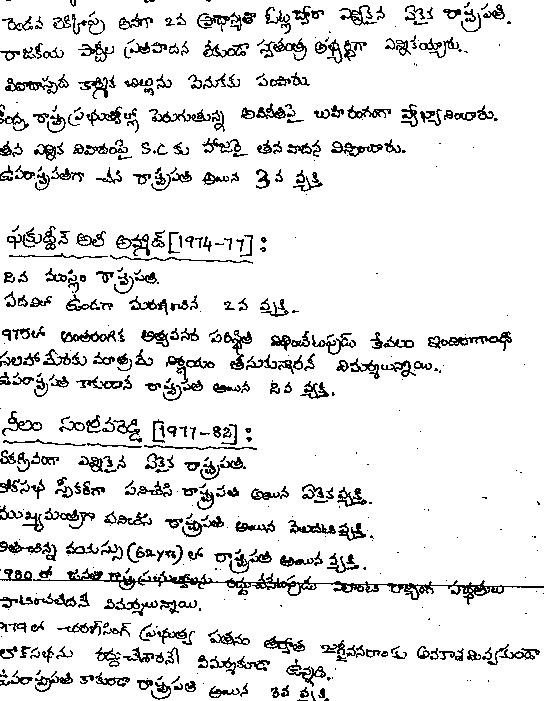 రెండవ లెక్కింపు అనగా 2వ ప్రాధాన్యతా ఓట్ల ద్వారా ఎన్నికైన ఏకైక రాష్ట్రపతి.
రాజకీయ పార్టీల ప్రతిపాదన లేకుండా స్వతంత్ర అభ్యర్థిగా ఎన్నికయ్యారు.
వివాదాస్పద కార్మిక బిల్లును వెనుకకు పంపారు
కేంద్ర, రాష్ట్ర ప్రభుత్వాల్లో పెరుగుతున్న అవినీతిపై బహిరంగంగా వ్యాఖ్యానించారు.
తన ఎన్నిక వివాదంపై S.C కు హాజరై తన వాదన వినిపించారు.
ఉపరాష్ట్రపతిగా చేసి రాష్ట్రపతి అయిన 3 వ వ్యక్తి
ఫక్రుద్దీన్ అలీ అహ్మద్ [1974-77] :
2వ ముస్లిం రాష్ట్రపతి.
పదవిలో ఉండగా మరణించిన 2 వ వ్యక్తి.
1975లో అంతరంగిక అత్యవసర పరిస్థితి విధించేటప్పుడు కేవలం ఇందిరాగాంధీ
సలహా మేరకు మాత్రమే నిర్ణయం తీసుకున్నారనే విమర్శలున్నాయి.
ఉపరాష్ట్రపతి కాకుండా రాష్ట్రపతి అయిన 2వ వ్యక్తి.
నీలం సంజీవరెడ్డి [1977-82] :
ఏకగ్రీవంగా ఎన్నికైన ఏకైక రాష్ట్రపతి.
లోక్‌సభ స్పీకర్‌గా పనిచేసి రాష్ట్రపతి అయిన ఏకైక వ్యక్తి.
ముఖ్యమంత్రిగా పనిచేసి రాష్ట్రపతి అయిన మొదటి వ్యక్తి.
అతిచిన్న వయస్సు (62yrs) లో రాష్ట్రపతి అయిన వ్యక్తి.
1980 లో జనతా రాష్ట్ర ప్రభుత్వాలను రద్దు చేసేటప్పుడు ఎలాంటి రాజ్యాంగ పద్ధతులు
పాటించలేదనే విమర్శలున్నాయి.
1979లో చరణ్‌సింగ్ ప్రభుత్వ పతనం తర్వాత జగ్జీవన్‌రాంకు అవకాశమివ్వకుండా
లోక్‌సభను రద్దుచేశారనే విమర్శకూడా ఉన్నది.
ఉపరాష్ట్రపతి కాకుండా రాష్ట్రపతి అయిన 3వ వ్యక్తి